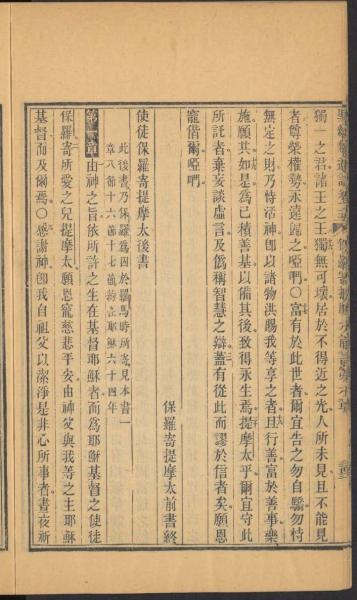 獨一之君諸王之王獨無可壞居於不得近之光人所未見且不能見
者尊榮權勢永遠歸之啞們○富有於此世者爾宜告之勿自驕勿恃
無定之財乃恃活神卽以諸物洪賜我等享之者且行善富於善事樂
施願共如是為己積善基以備其後致得永生焉提摩太乎爾宜守此
所託者棄妄談虛言及僞稱智慧之辯蓋有從此而謬於信者矣願恩
寵偕爾啞們
保羅寄提摩太前書終
使徒保羅寄提摩太後書
此後書乃保羅為囚於羅馬時所寄見本書一
章八節十六節十七節約主耶穌六十四年
第一章由神之旨依所許之生在基督耶穌者而為耶穌基督之使徒
保羅寄所愛之兒提摩太願恩寵慈悲平安由神父與我等之主耶穌
基督而及爾焉○感謝神卽我自祖父以潔淨是非心所事者晝夜祈